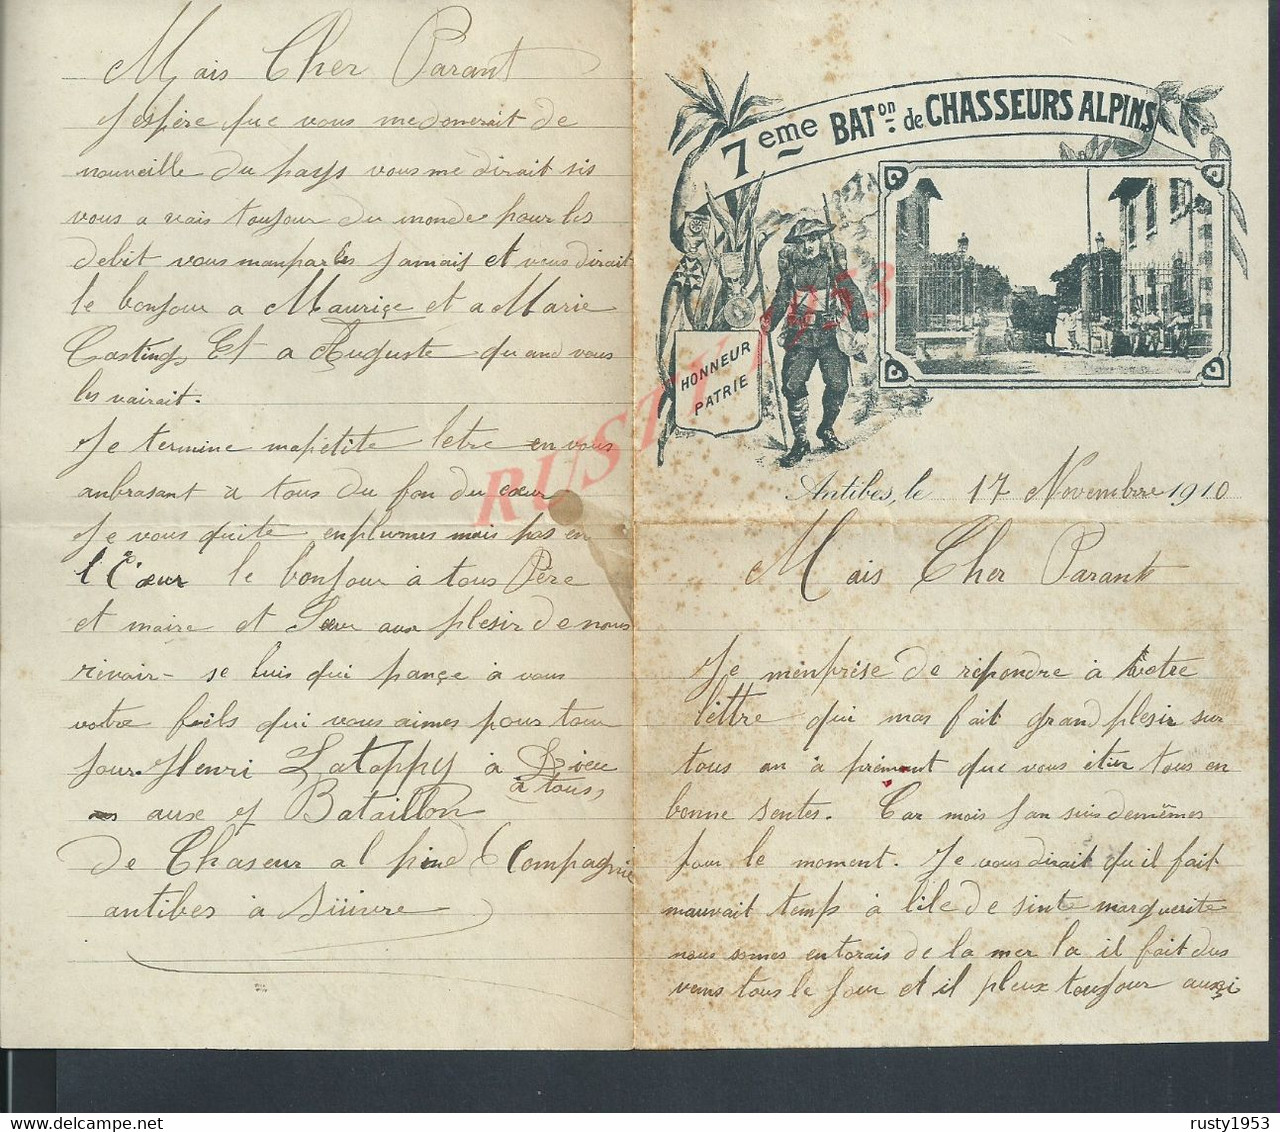 7eme BATon de CHASSEURS ALPINS
HONNEUR
PATRIE
Antibes, le 17 Novembre 1910
Mais Cher Parant
Je m'enprèse de répondre à votre
lettre qui mas fait grand plesir sur
tous an à prenant que vous étier tous en
bonne sentes. Car mois jan suis demêmes
pour le moment. Je vous dirait qu'il fait
mauvait temps à l'ile de sinte marguerite
nous sommes entorais de la mer la il fait dus
vens tous le jour et il pleux toujour aussi
Mais Cher Parant
J'espère que vous me donerait de
nouveille du pays vous me dirait sis
vous a vais toujour du monde pour les
debit vous manparles jamais et vous dirait
le bonjour a Maurice et a Marie
Casting Et a Auguste quand vous
les vairait.
Je termine mapetite letre en vous
anbrasant a tous du fon du cœur
Je vous quite enplumes mais pas en
l Cœur le bonjour à tous Père
et maire et Sœur aux plesir de nous
revoir - se luis qui pançe à vous
votre fiels qui vous aimes pour tour
jour. Henri Latappy à Dieu
à tous,
aux 7 Bataillon
de Chaseur al pind 6 Compagnie
antibes à suivre
RUSTY1953
rusty1953